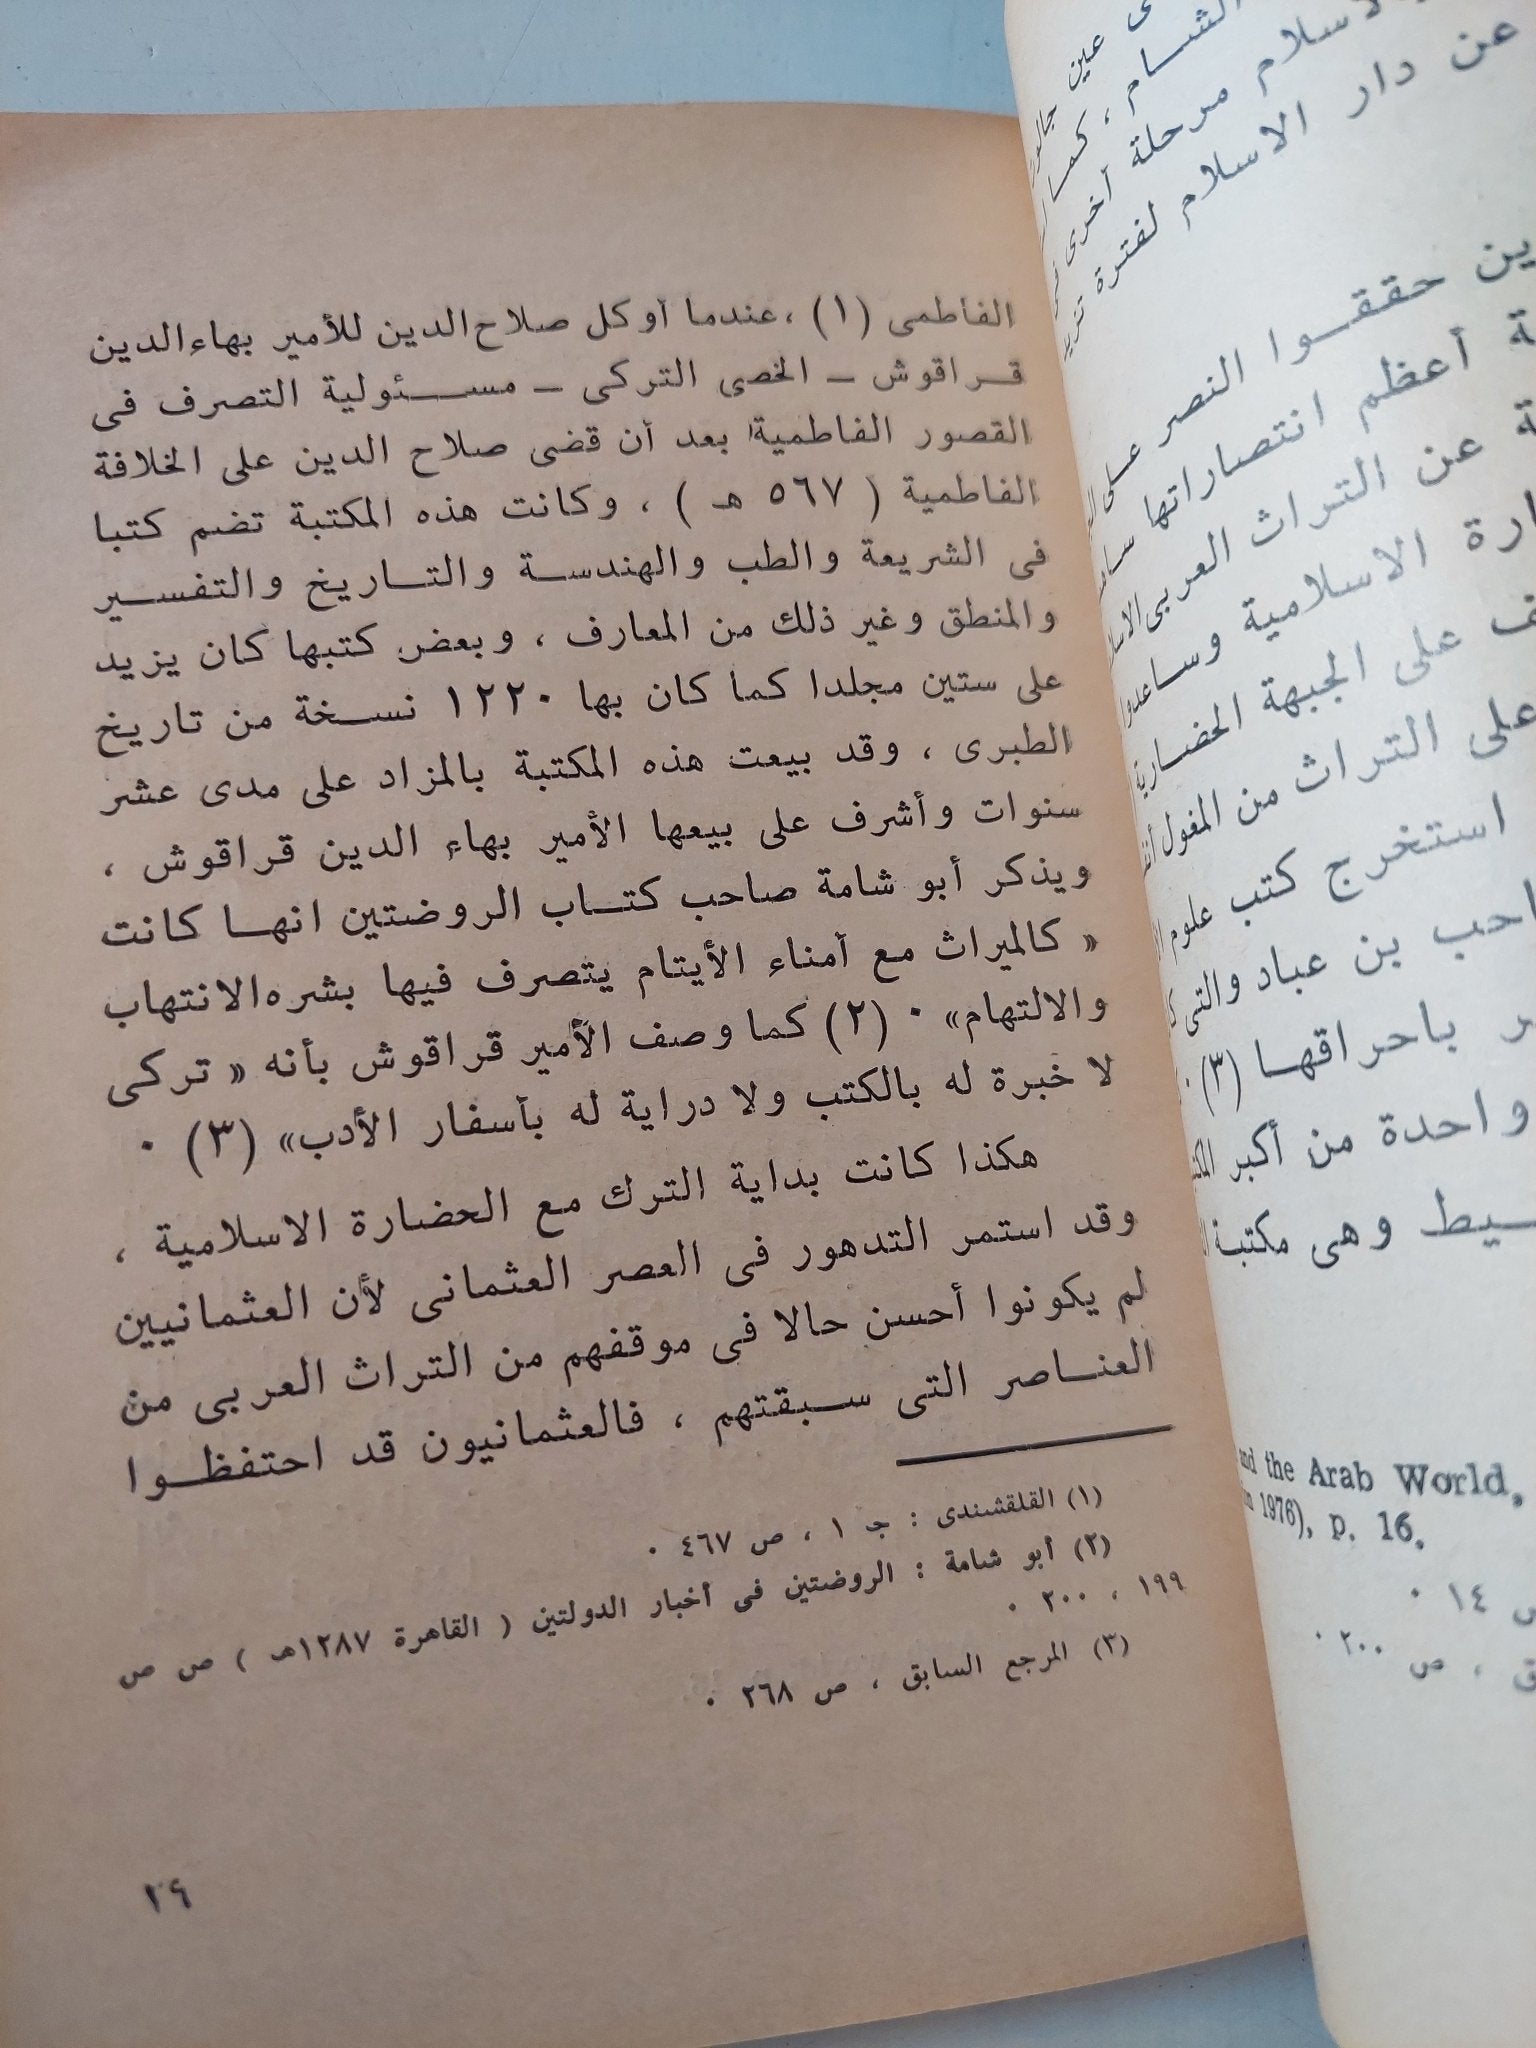 الفاطمى (١) ، عندما أوكل صلاح الدين للأمير بهاء الدين
قراقوش ــ الخصى التركى ــ مسئولية التصرف فى
القصور الفاطمية بعد أن قضى صلاح الدين على الخلافة
الفاطمية ( ٥٦٧ هـ ) ، وكانت هذه المكتبة تضم كتبا
فى الشريعة والطب والهندسة والتاريخ والتفسير
والمنطق وغير ذلك من المعارف ، وبعض كتبها كان يزيد
على ستين مجلدا كما كان بها ١٢٢٠ نسخة من تاريخ
الطبرى ، وقد بيعت هذه المكتبة بالمزاد على مدى عشر
سنوات وأشرف على بيعها الأمير بهاء الدين قراقوش ،
ويذكر أبو شامة صاحب كتاب الروضتين انها كانت
« كالميراث مع أمناء الأيتام يتصرف فيها بشره الانتهاب
والالتهام» ٠ (٢) كما وصف الأمير قراقوش بأنه « تركى
لا خبرة له بالكتب ولا دراية له بأسفار الأدب» (٣) ٠
هكذا كانت بداية الترك مع الحضارة الاسلامية ،
وقد استمر التدهور فى العصر العثمانى لأن العثمانيين
لم يكونوا أحسن حالا فى موقفهم من التراث العربى من
العناصر التى سبقتهم ، فالعثمانيون قد احتفظوا
(١) القلقشندى : جـ ١ ، ص ٤٦٧ ٠
(٢) أبو شامة : الروضتين فى أخبار الدولتين ( القاهرة ١٢٨٧هـ ) ص ص
١٩٩ ، ٢٠٠ ٠
(٣) المرجع السابق ، ص ٢٦٨ ٠
٢٩
عين
الشام ، كما
الاسلام مرحلة أخرى
عن دار الاسلام لفترة
حققوا النصر على
أعظم انتصاراتها
عن التراث العربى
الاسلامية وساعدوا
على الجبهة الحضارية
على التراث من المغول
استخرج كتب علوم
بن عباد والتى
باحراقها (٣) ٠
واحدة من أكبر
وهى مكتبة
and the Arab World,
1976), p. 16.
١٤ ٠
، ص ٢٠٠ ٠